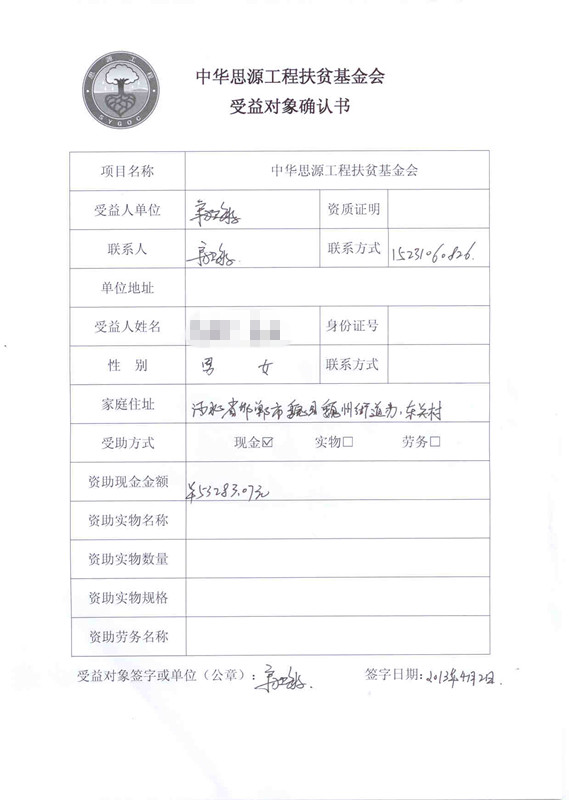 思源工程
SYGOC
中华思源工程扶贫基金会
受益对象确认书
项目名称 中华思源工程扶贫基金会
受益人单位 资质证明
联系人 联系方式 15231060826.
单位地址
受益人姓名 身份证号
性 别 男 女 联系方式
家庭住址 河北省邯郸市魏县魏州街道办.东关村
受助方式 现金☑ 实物□ 劳务□
资助现金金额 ¥53283.07元
资助实物名称
资助实物数量
资助实物规格
资助劳务名称
受益对象签字或单位（公章）： 签字日期：2013年4月2日.